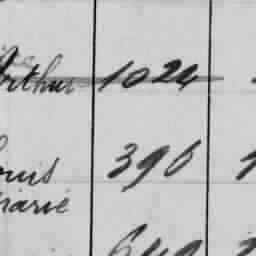 Arthur 1024
ouis 396
marie
649